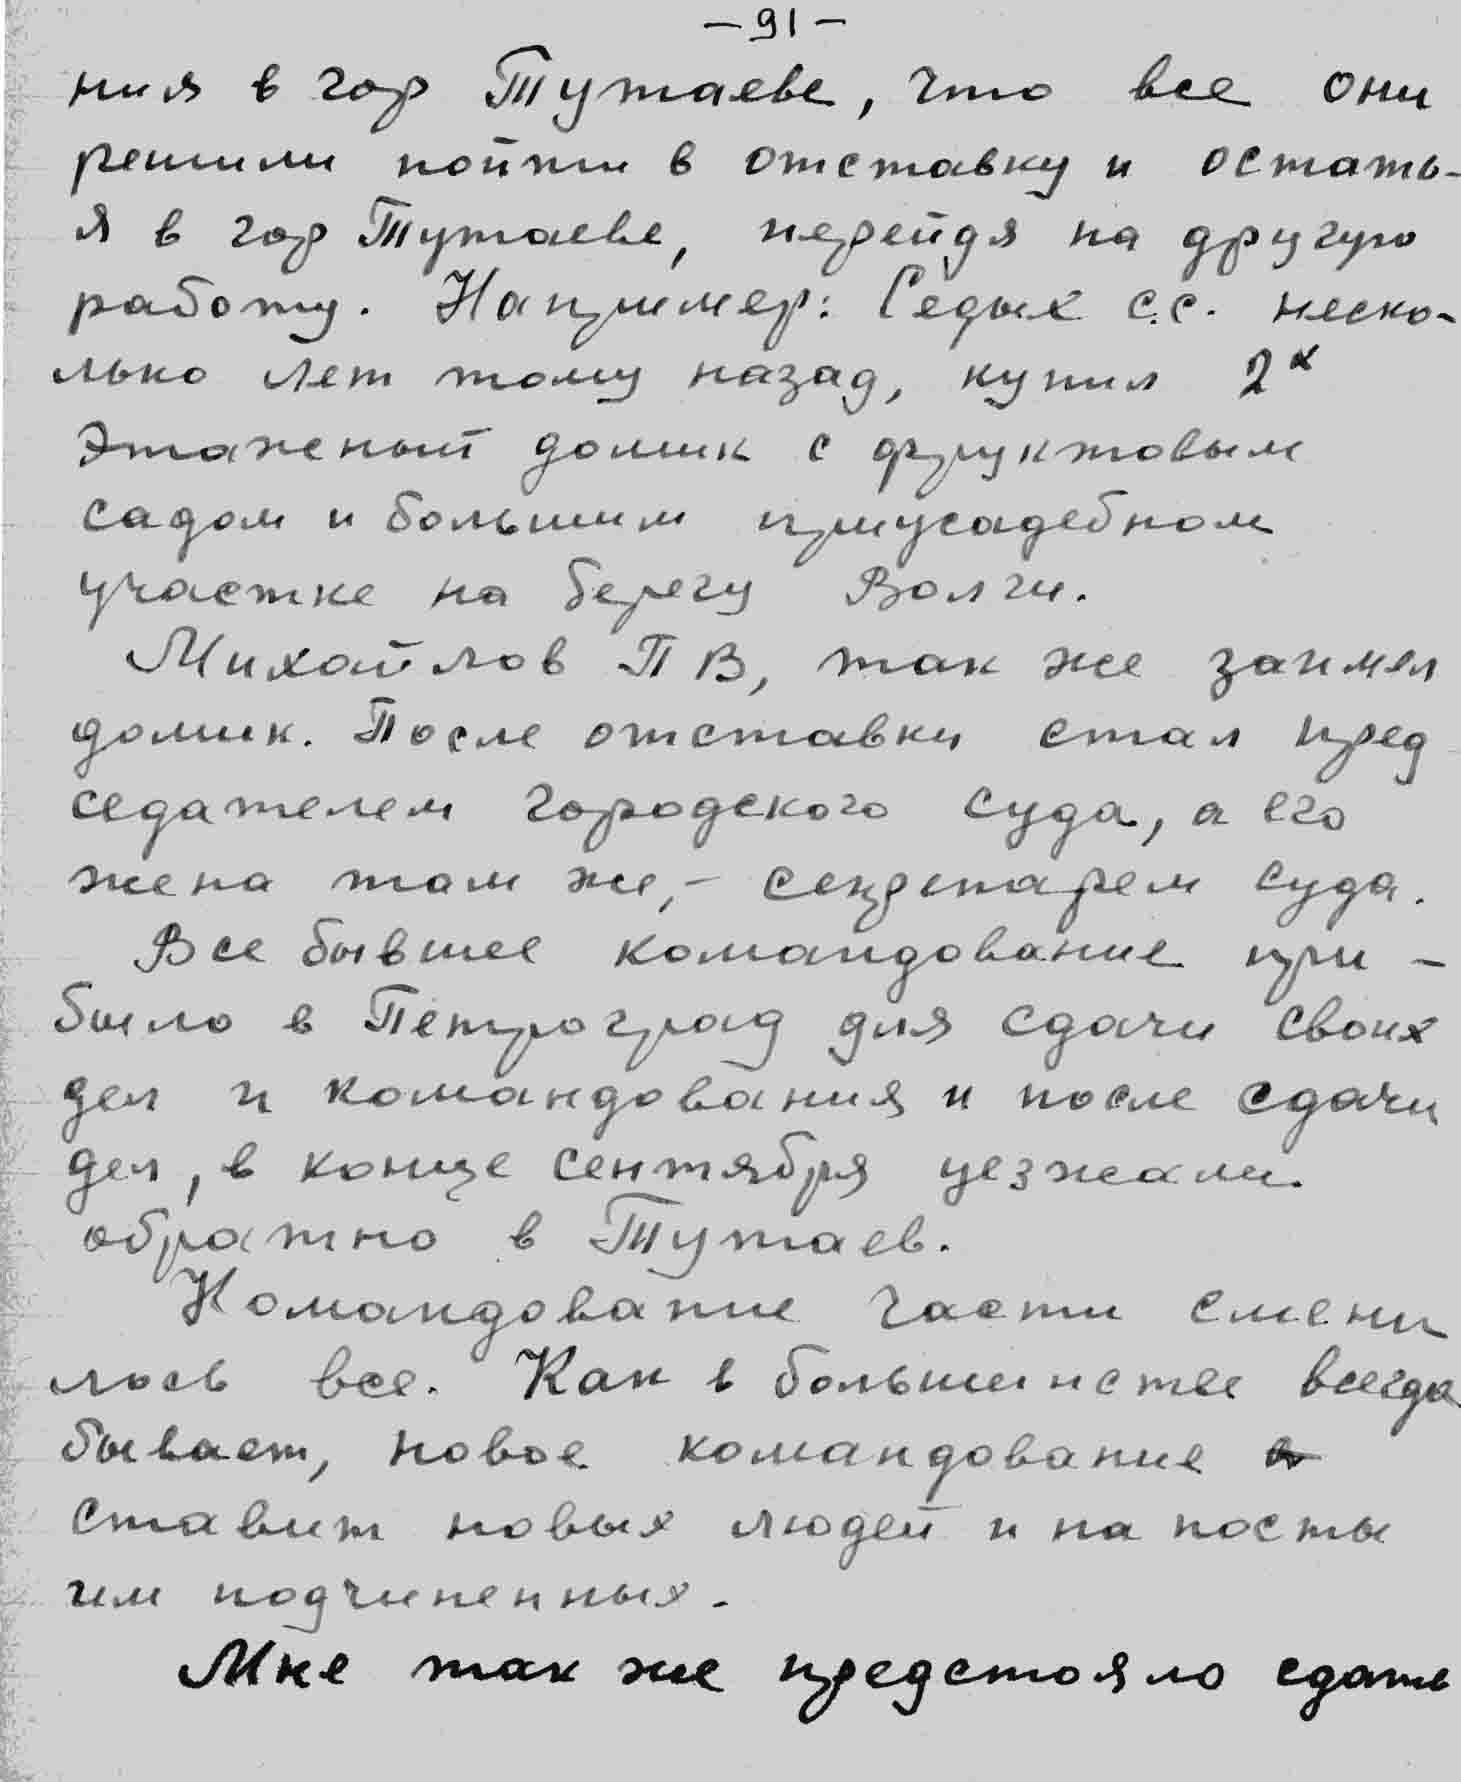 -91-
ния в гор Тутаеве, что все они
решили пойти в отставку и остать-
я в гор Тутаеве, перейдя на другую
работу. Например: Седых С.С. неско-
лько лет тому назад, купил 2х
этаженый домик с фруктовым
садом и большим приусадебном
участке на берегу Волги.
Михайлов П В, так же заимел
домик. После отставки стал пред
седателем городского суда, а его
жена там же,- секретарем суда.
Все бывшее командование при-
было в Петроград для сдачи своих
дел и командования и после сдачи
дел, в конце сентября уезжали
обратно в Тутаев.
Командование части смени
лось все. Как в большинстве всегда
бывает, новое командование
ставит новых людей и на посты
им подчиненных.
Мне так же предстояло сдать